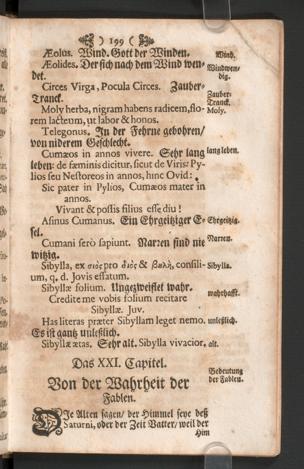 ) 199 (
Æolus. Wind. Gott der Winden. Wind.
Æolides. Der sich nach dem Wind wen- Windwen-
det. dig.
Circes Virga, Pocula Circes. Zauber- Zauber-
Tranck. Tranck.
Moly herba, nigram habens radicem, flo- Moly.
rem lacteum, ut labor & honos.
Telegonus. In der Fehrne gebohren/
von niderem Geschlecht.
Cumæos in annos vivere. Sehr lang lang leben.
leben: de fæminis dicitur, sicut de Viris: Py-
lios seu Nestoreos in annos, hinc Ovid:
Sic pater in Pylios, Cumæos mater in
annos.
Vivant & possis filius esse diu!
Asinus Cumanus. Ein Ehrgeitziger E- Ehrgeitzig.
sel.
Cumani serò sapiunt. Narren sind nie Narren.
witzig.
Sibylla, ex σιὸς pro διὸς & βαλὴ, consili- Sibylla.
um, q. d. Jovis effatum.
Sibyllæ folium. Ungezweiflet wahr. wahrhafft.
Credite me vobis folium recitare
Sibyllæ. Juv.
Has literas præter Sibyllam leget nemo. unleßlich.
Es ist gantz unleßlich.
Sibyllæ ætas. Sehr alt. Sibylla vivacior. alt.
Das XXI. Capitel.
Von der Wahrheit der Bedeutung
Fablen. der Fablen.
DIe Alten sagen/ der Himmel seye deß
Saturni, oder der Zeit Vatter/ weil der
Him